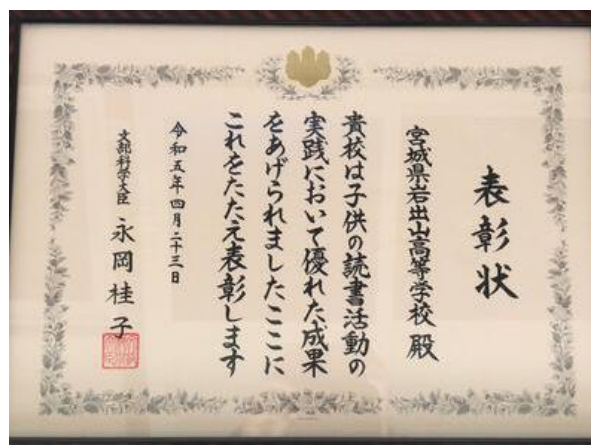 表彰状
宮城県岩出山高等学校 殿
貴校は子供の読書活動の
実践において優れた成果
をあげられましたここに
これをたたえ表彰します
令和五年四月二十三日
文部科学大臣 永岡桂子